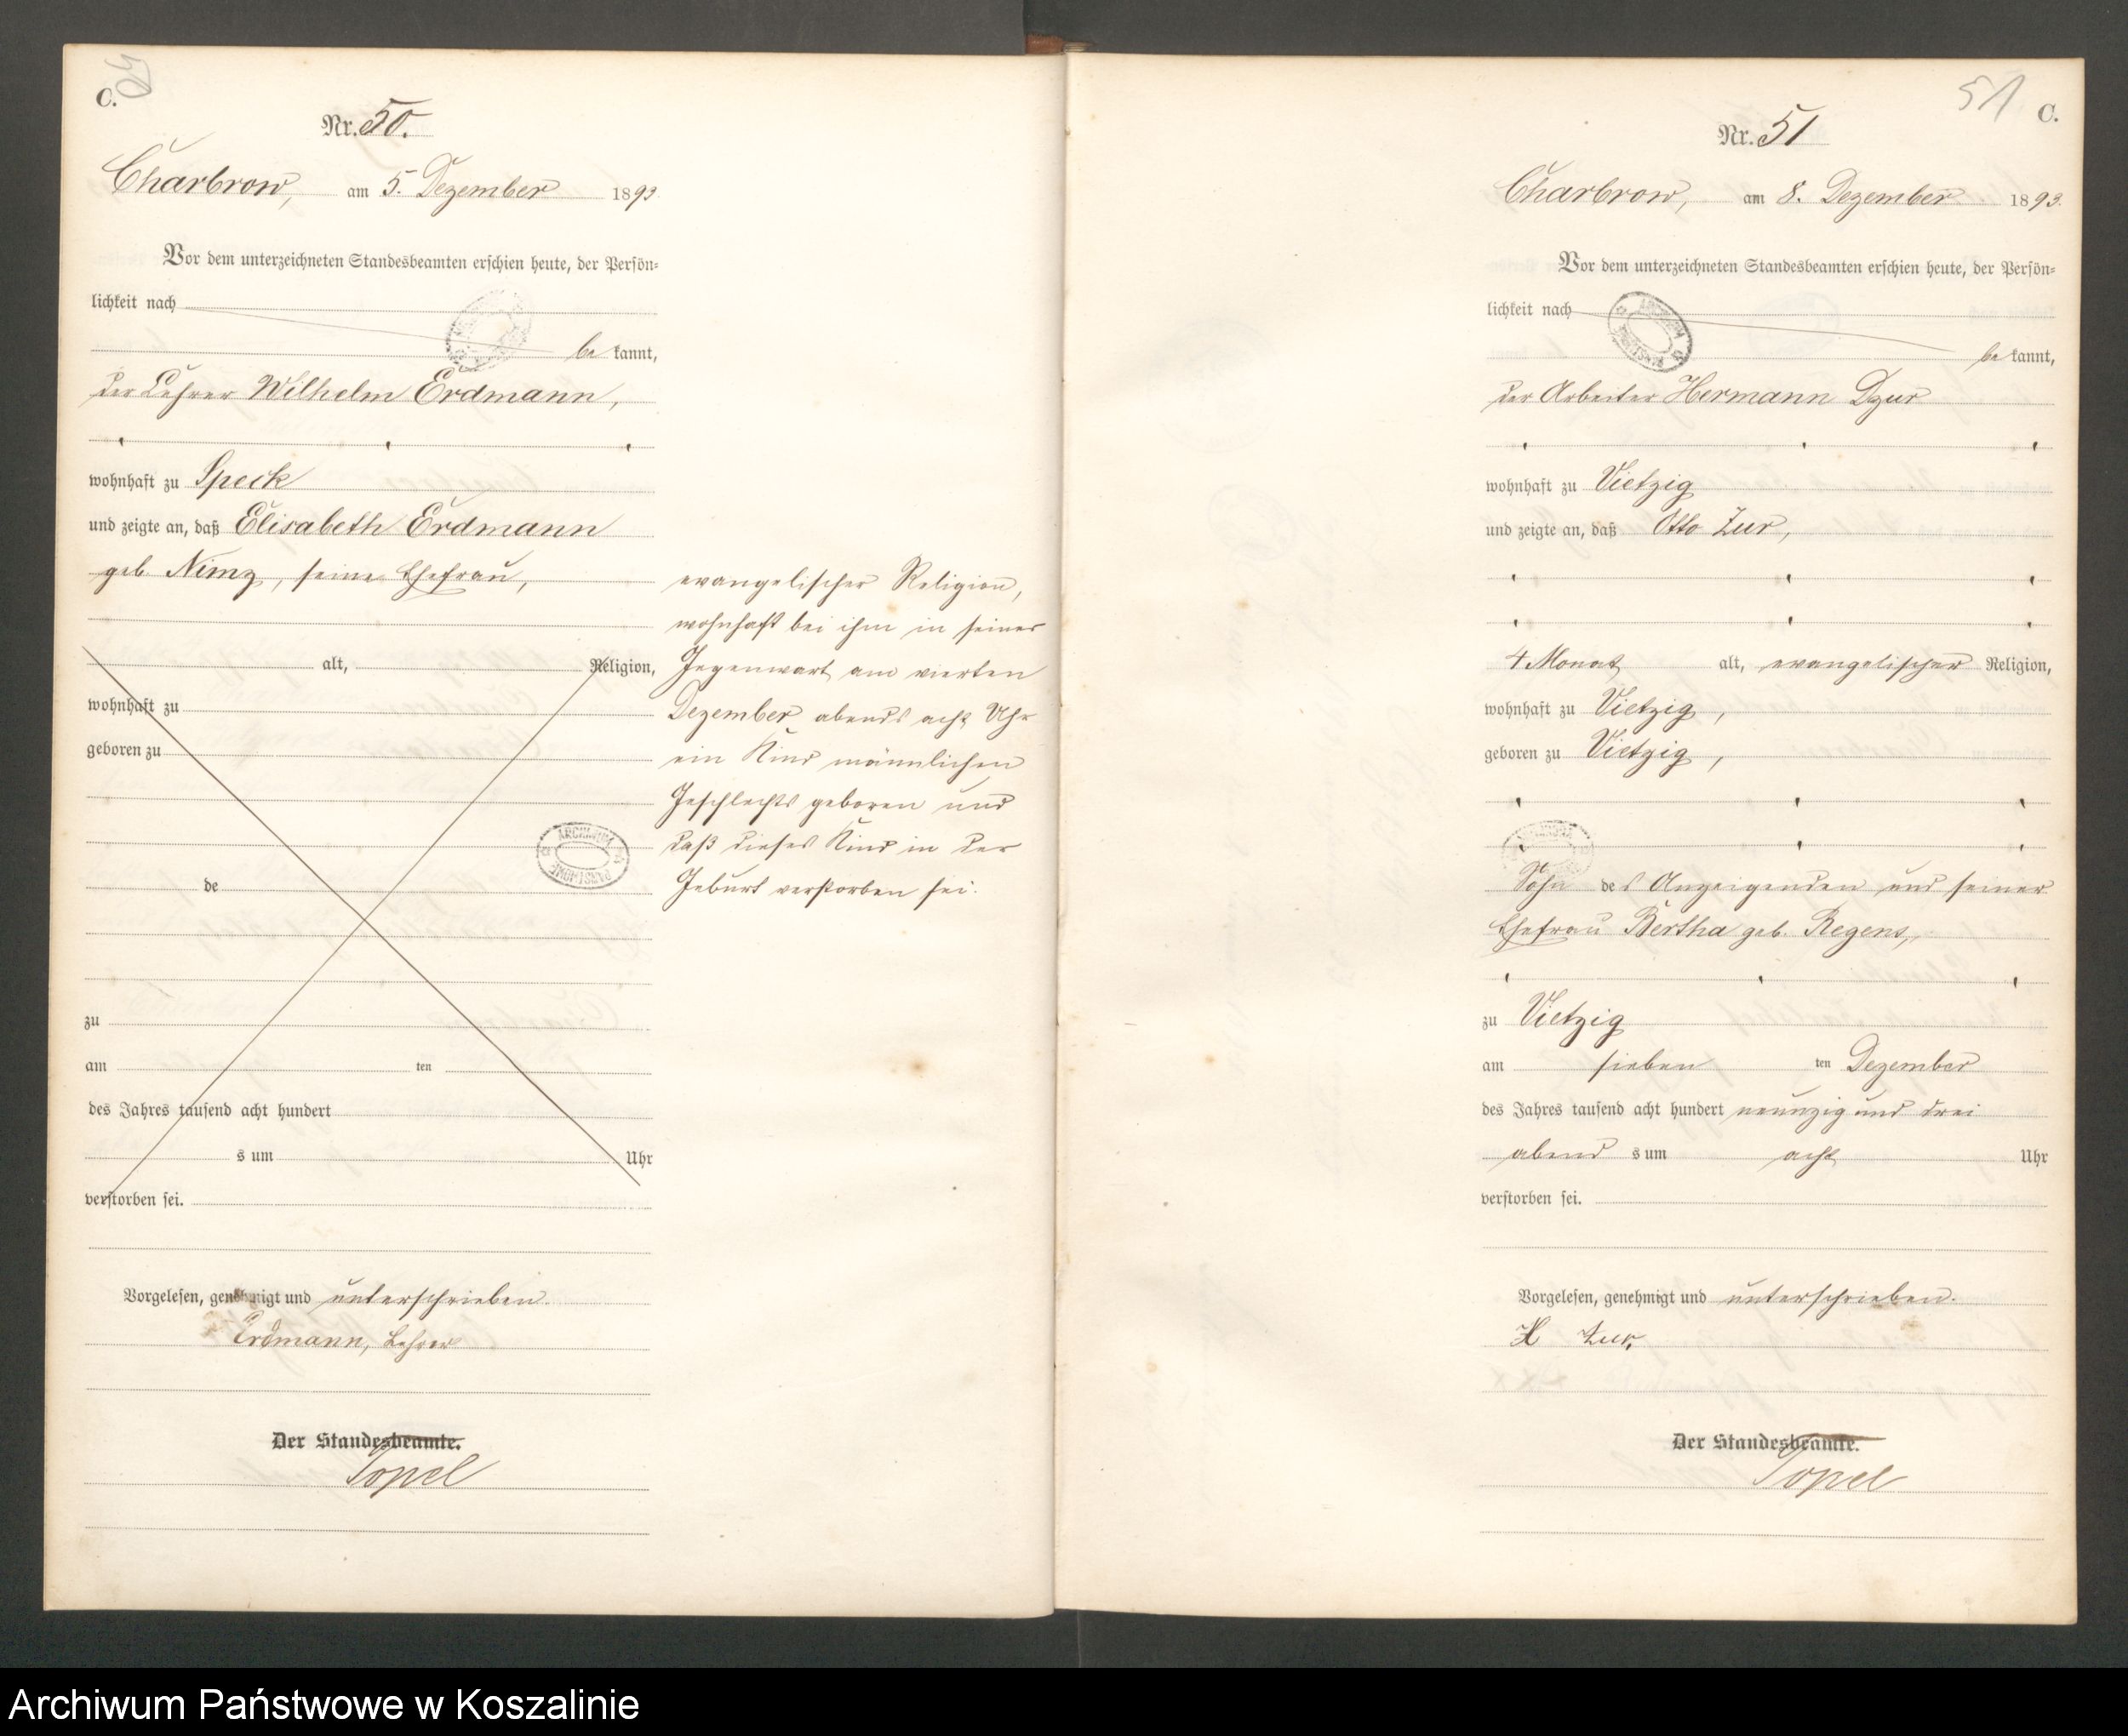 C.
Nr. 50.
Charbrow, am 5. Dezember 1893.
Vor dem unterzeichneten Standesbeamten erschien heute, der Persön-
lichkeit nach
be kannt,
der Lehrer Wilhelm Erdmann,
wohnhaft zu Speck
und zeigte an, daß Elisabeth Erdmann
geb. Nimz, seine Ehefrau,
alt, Religion,
wohnhaft zu
geboren zu
de
zu
am ten
des Jahres tausend acht hundert
s um Uhr
verstorben sei.
evangelischer Religion,
wohnhaft bei ihm in seiner
Gegenwart am vierten
Dezember abends acht Uhr
ein Kind männlichen
Geschlechts geboren und
daß dieses Kind in der
Geburt verstorben sei.
ARCHIWUM PAŃSTWOWE
Vorgelesen, genehmigt und unterschrieben.
Erdmann, Lehrer
Der Standesbeamte.
Topel
51 C.
Nr. 51
Charbrow, am 8. Dezember 1893.
Vor dem unterzeichneten Standesbeamten erschien heute, der Persön-
lichkeit nach
be kannt,
der Arbeiter Hermann Dzur
wohnhaft zu Vietzig
und zeigte an, daß Otto Zur,
4 Monat alt, evangelischer Religion,
wohnhaft zu Vietzig,
geboren zu Vietzig,
Sohn des Anzeigenden und seiner
Ehefrau Bertha geb. Regens,
zu Vietzig
am sieben ten Dezember
des Jahres tausend acht hundert neunzig und drei
abend s um acht Uhr
verstorben sei.
Vorgelesen, genehmigt und unterschrieben.
H Zur.
Der Standesbeamte.
Topel
Archiwum Państwowe w Koszalinie